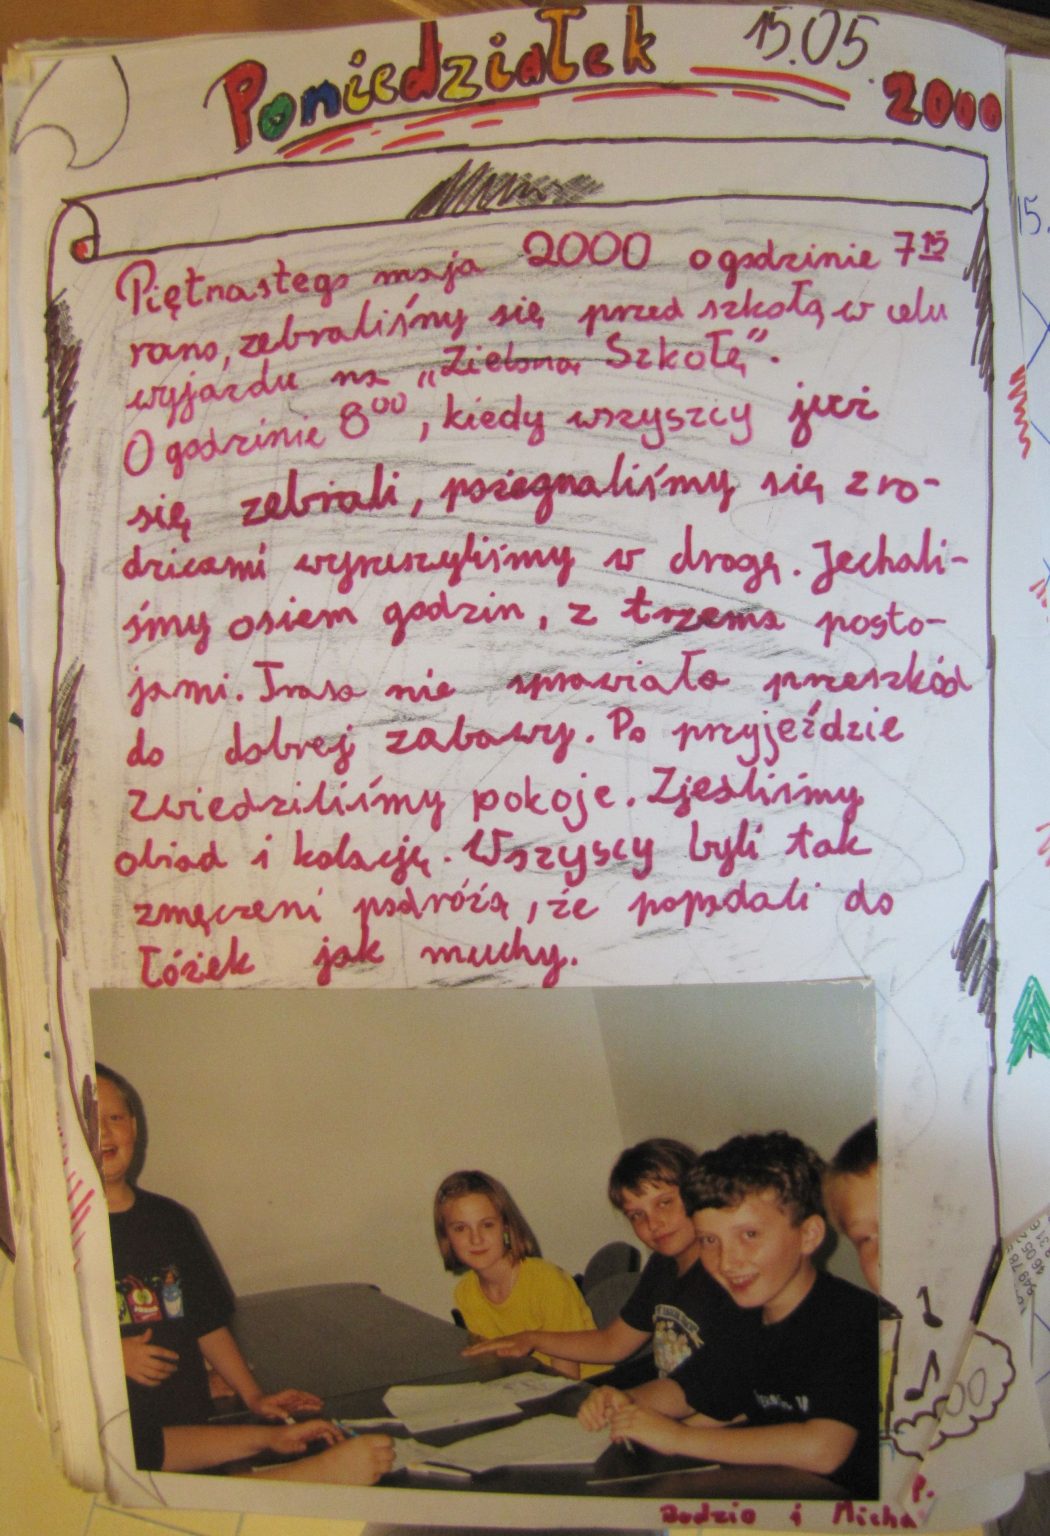 Poniedziałek 15.05.
2000
Piętnastego maja 2000 o godzinie 7 15
rano, zebraliśmy się przed szkołą w celu
wyjazdu na „Zieloną Szkołę”.
O godzinie 8 00, kiedy wszyscy już
się zebrali, pożegnaliśmy się z ro-
dzicami wyruszyliśmy w drogę. Jechali-
śmy osiem godzin, z trzema posto-
jami. Trasa nie sprawiała przeszkód
do dobrej zabawy. Po przyjeździe
zwiedziliśmy pokoje. Zjedliśmy
obiad i kolację. Wszyscy byli tak
zmęczeni podróżą, że popadali do
łóżek jak muchy.
Dudzio i Micha P.
15.